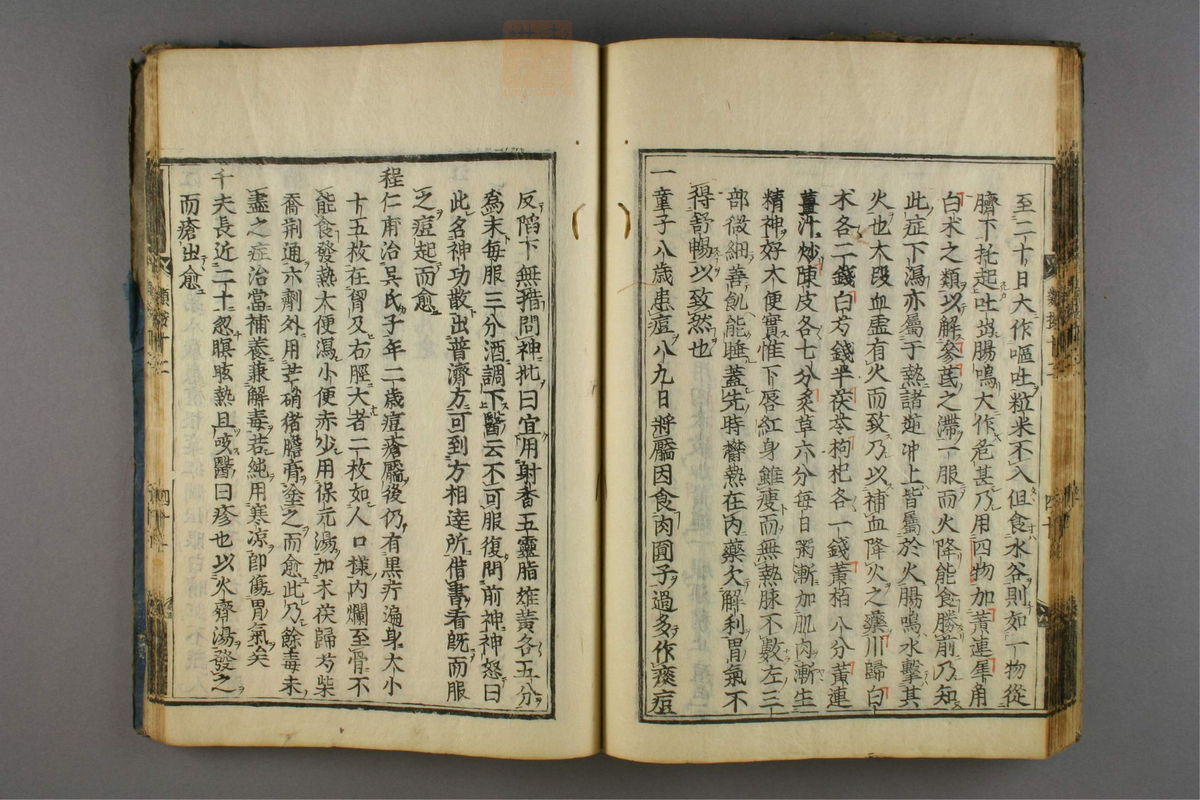 至二十日大作嘔吐粒米不入但食水谷則如一物從
臍下托起吐出腸鳴大作危甚乃用四物加黃連犀角
白朮之類以解參芪之滯一服而火降能食勝前乃知
此症下瀉亦屬于熱諸逆冲上皆屬於火腸鳴水擊其
火也大段血虛有火而致乃以補血降火之藥川歸白
术各二錢白芍錢半茯苓枸杞各一錢黃栢八分黃連
薑汁炒陳皮各七分炙草六分每日粥漸加肌肉漸生
精神好大便實惟下唇紅身雖瘦而無熱脉不數左三
部微細善飢能睡蓋先時欝熱在內藥欠解利胃氣不
得舒暢以致然也
一童子八歲患痘八九日將靨因食肉圓子過多作痰痘
反陷下無措問神批曰宜用射香五靈脂雄黃各五分
爲末每服三分酒調下醫云不可服復問前神神怒曰
此名神功散出普濟方可到方相逵所借書看既而服
之痘起而愈
程仁甫治吳氏子年二歲痘瘡靨後仍有黑疔遍身大小
十五枚在胷及右脛大者二枚如人口樣內爛至骨不
能食發熱大便瀉小便赤少用保元湯加朮茯歸芍柴
喬荆通六劑外用芒硝猪膽膏塗之而愈此乃餘毒未
盡之症治當補養兼解毒若純用寒凉卽傷胃氣矣
千夫長近二十忽瞑眩熱且咳醫曰疹也以火齊湯發之
而瘡出愈